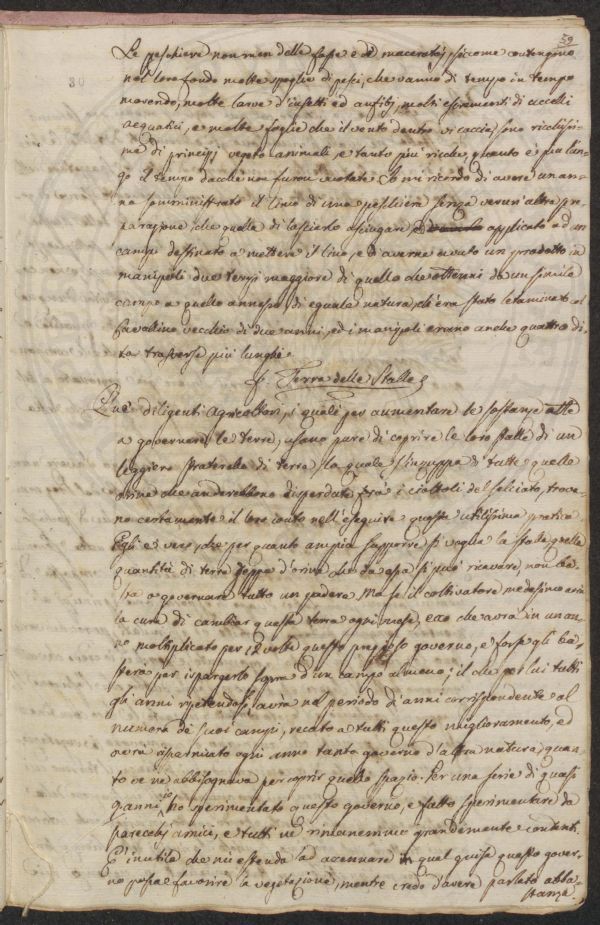 59
Le peschiere non men delle fosse e de' maceratoj, siccome contengono
nel loro fondo molte spoglie di pesci, che vanno di tempo in tempo
morendo, molte larve d'insetti ed anfibj, molti escrementi di uccelli
acquatici, e molte foglie che il vento dentro vi caccia, sono ricchissi-
me di principj vegeto animali, e tanto più ricche quanto è più lun-
go il tempo dacchè non furon vuotate. Io mi ricordo di avere un an-
no somministrato il limo di una peschiera senza verun'altra pre-
parazione che quella di lasciarlo asciugare applicato ad un
campo destinato a mettere il lino, e di averne avuto un prodotto in
manipoli due terzi maggiore di quello che ottenni da un simile
campo a quello annesso, di eguale natura, ch'era stato letaminato col
cavallino vecchio di due anni, ed i manipoli erano anche quattro di-
ta trasverse più lunghi.
Terra delle Stalle
Que' diligenti Agricoltori, i quali per aumentare le sostanze atte
a governare le terre, usano pure di coprire le loro stalle di un
leggiero straterello di terra, la quale s'inzuppa di tutte quelle
orine che anderebbono disperdute fra i ciottoli del selciato, trova-
no certamente il loro conto nell'eseguire questa utilissima pratica.
Egli è vero, che per quanto ampia supporre si voglia la stalla, quella
quantità di terra zeppa d'orina che da essa si può ricavare, non ba-
sta a governare tutto un podere. Ma se il coltivatore medesimo avrà
la cura di cambiar questa terra ogni mese, ecco che avrà in un an-
no moltiplicato per 12 volte questo prezioso governo, e forse gli ba-
sterà per ispargerlo sopra d'un campo almeno; il che per lui tutti
gli anni ripetendosi, avrà nel periodo d'anni corrispondente al
numero de' suoi campi, recato a tutti questo miglioramento, ed
avrà risparmiato ogni anno tanto governo d'altra natura, quan-
to ve ne abbisognava per coprir quello spazio. Per una serie di quasi
9 anni io ho sperimentato questo governo, e fatto sperimentare da
parecchj amici, e tutti ne rimanemmo grandemente contenti.
È inutile che mi estenda ad accennare in qual guisa questo gover-
no possa favorire la vegetazione, mentre credo d'avere parlato abba-
stanza